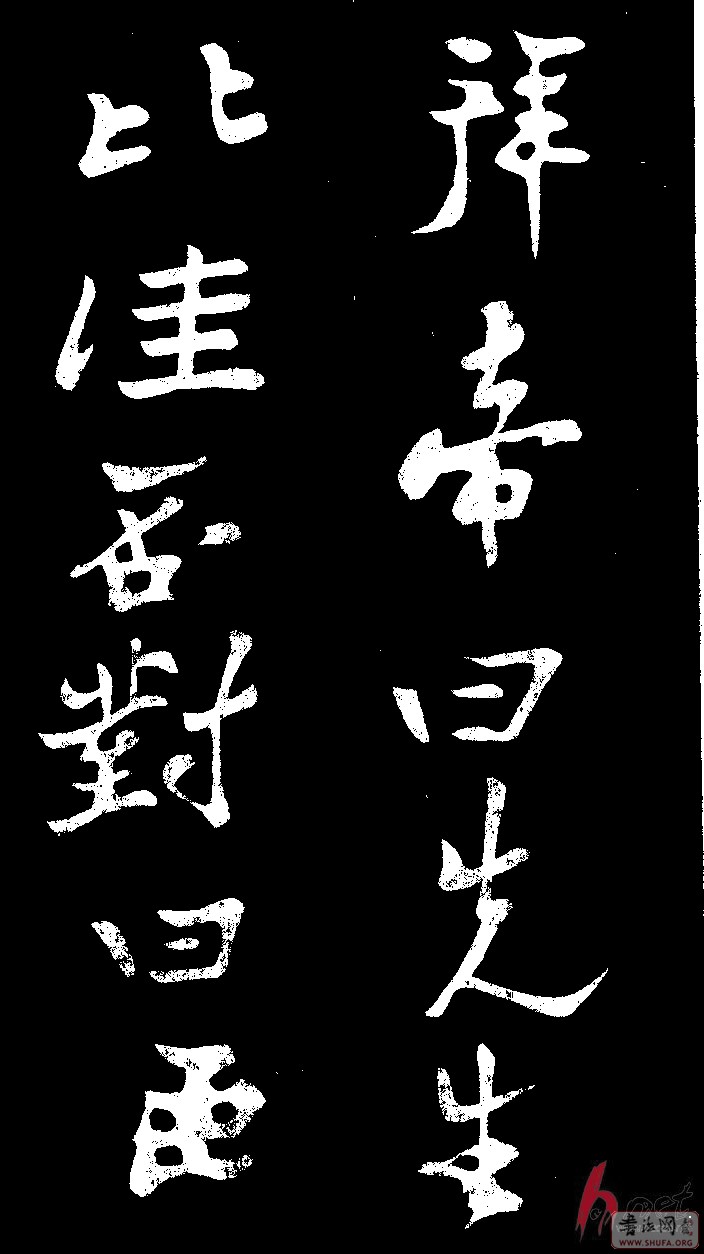 拜帝曰先生
比佳否對曰
書法网
WWW.SHUFA.ORG